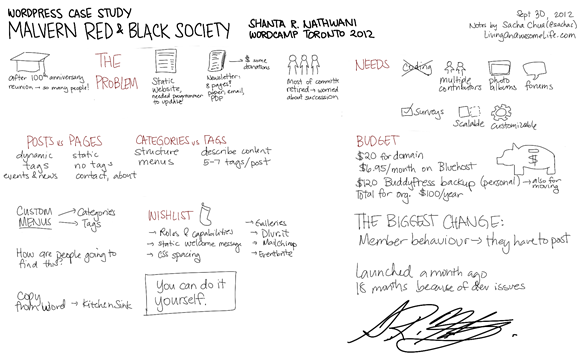 WORDPRESS CASE STUDY
MALVERN RED & BLACK SOCIETY
SHANTA R. NATHWANI
WORDCAMP TORONTO 2012
Sept 30, 2012
Notes by Sacha Chua (@sachac)
LivingAnAwesomeLife.com
after 100th anniversary
reunion → so many people!
THE
PROBLEM
Static
Website,
needed programmer
to update!
$ some
donations
Newsletter:
8 pages!
paper, email,
PDF
Most of committee
retired → worried
about succession
NEEDS
coding
multiple
contributors
photo
albums
forums
Surveys
Scalable
customizable
POSTS vs PAGES
dynamic static
tags no tags
events & news contact, about
CATEGORIES vs TAGS
structure describe content
menus 5-7 tags/post
BUDGET
$20 for domain
$6.95/month on Bluehost
$120 BuddyPress backup (personal) → also for
moving
Total for org. $100/year
$
CUSTOM
MENUS
→ Categories
→ Tags
How are people going to
find this?
Copy
from Word → Kitchen Sink
WISHLIST
→ Roles & capabilities
→ static welcome message
→ CSS spacing
→ Galleries
→ Dlvr.it
→ Mailchimp
→ Eventbrite
You can do it
yourself.
THE BIGGEST CHANGE:
Member behaviour → they have to post
Launched a month ago
18 months because of dev issues